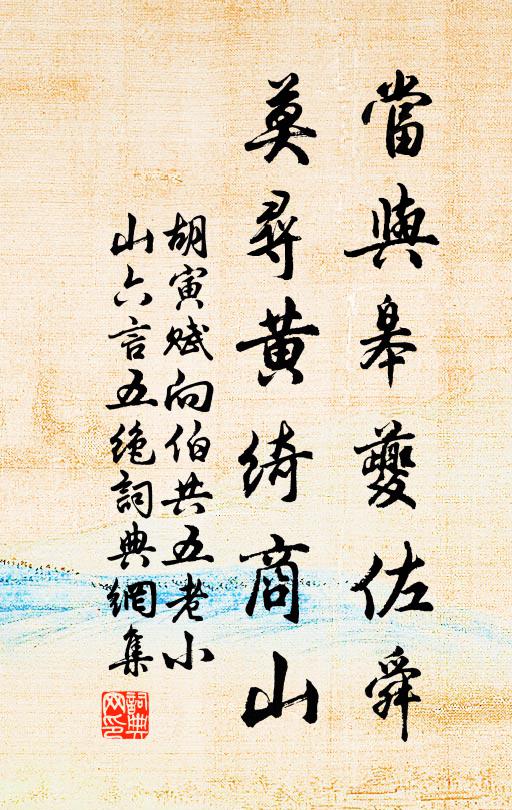 當與皋夔佐舜
莫尋黃綺商山
胡寅賦向伯共五老小
山六言五絕詞典網集
詞典
网印